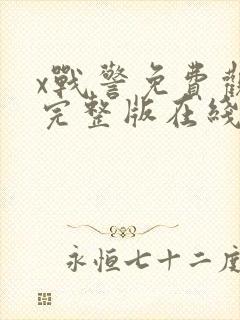 x戰警免費觀
完整版在綫
永恒七十二度